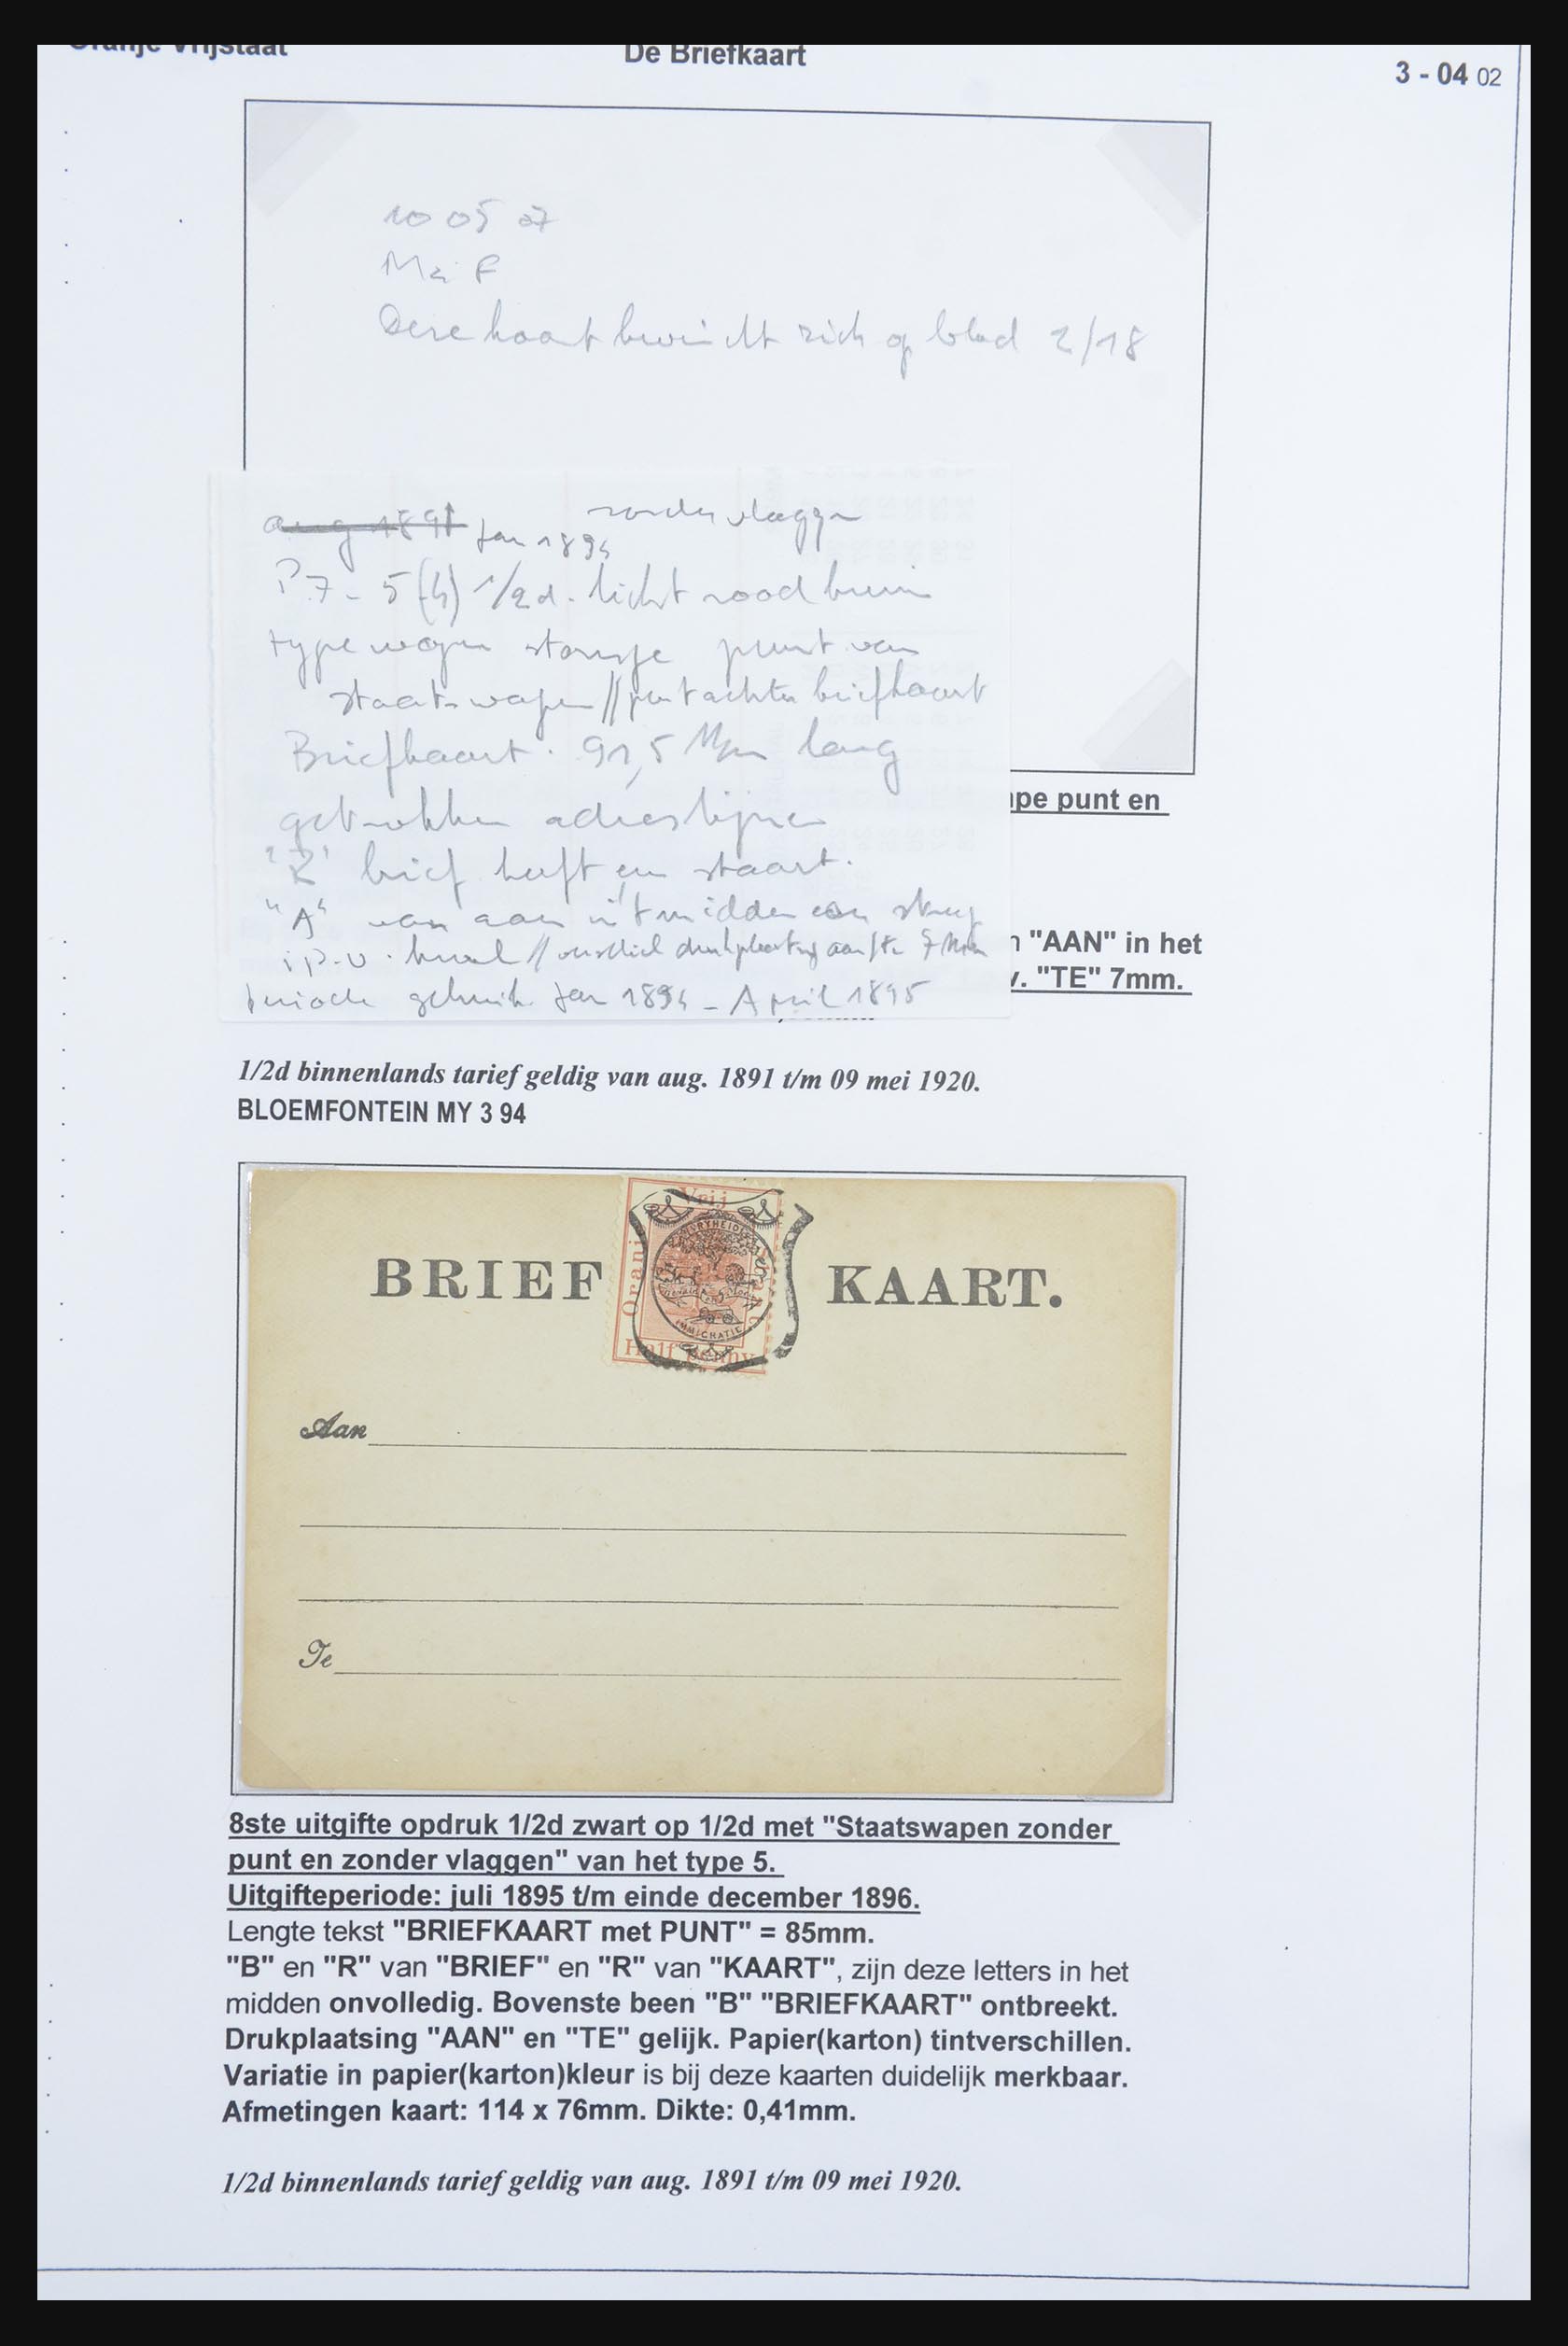 Oranje Vrijstaat
De Briefkaart
3 - 04 02
10 05 07
Deze kaart bevindt zich op blad 2/18
aug 1891 Jan 1894 zonder vlaggen
P.7 - 5(4) 1/2d. licht rood bruin
type wapen stompe punt van
staatswapen // punt achter briefkaart
Briefkaart. 91,5 Mm lang
getrokken adreslijnen
"R" brief heeft een staart.
"A" van aan in't midden een streep
i.p.v. // drukplaatsing aan/te 7 Mm
periode gebruik Jan 1894 - April 1895
pe punt en
"AAN" in het
v. "TE" 7mm.
1/2d binnenlands tarief geldig van aug. 1891 t/m 09 mei 1920.
BLOEMFONTEIN MY 3 94
BRIEF KAART.
Vrij
Oranje
Half penny
VRYHEID
IMMIGRATIE
Aan
Te
8ste uitgifte opdruk 1/2d zwart op 1/2d met "Staatswapen zonder
punt en zonder vlaggen" van het type 5.
Uitgifteperiode: juli 1895 t/m einde december 1896.
Lengte tekst "BRIEFKAART met PUNT" = 85mm.
"B" en "R" van "BRIEF" en "R" van "KAART", zijn deze letters in het
midden onvolledig. Bovenste been "B" "BRIEFKAART" ontbreekt.
Drukplaatsing "AAN" en "TE" gelijk. Papier(karton) tintverschillen.
Variatie in papier(karton)kleur is bij deze kaarten duidelijk merkbaar.
Afmetingen kaart: 114 x 76mm. Dikte: 0,41mm.
1/2d binnenlands tarief geldig van aug. 1891 t/m 09 mei 1920.